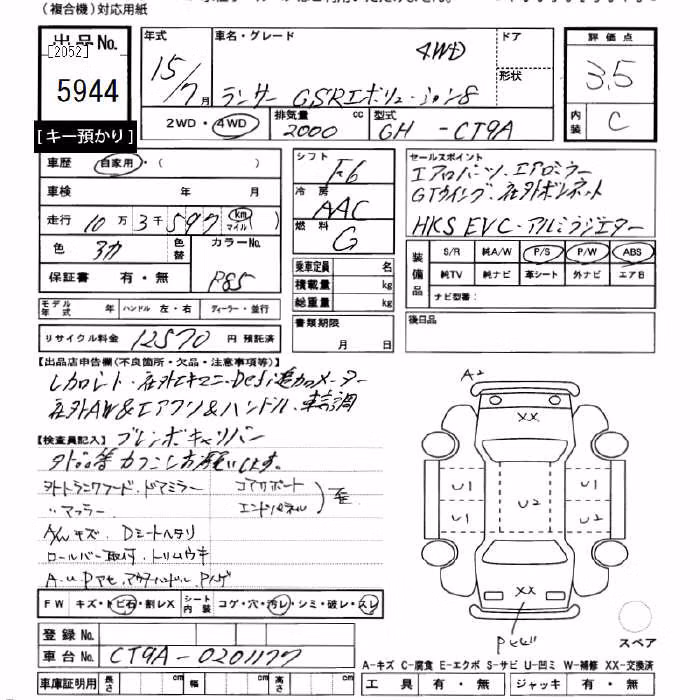 (複合機)対応用紙
出品No.
[2052]
5944
[キー預かり]
年式 15/7月
車名・グレード 4WD
ランサー GSRエボリューション8
ドア
形状
2WD・4WD
排気量 2000 cc
型式 GH - CT9A
評価点
3.5
内装 C
車歴 自家用・( )
車検 年 月
走行 10万3千597 km マイル
色 3カ 色替 カラーNo.
保証書 有・無 P85
モデル年式 年 ハンドル 左・右 ディーラー・並行
リサイクル料金 12570 円 預託済
シフト F6
冷房 AAC
燃料 G
乗車定員 名
積載量 kg
総重量 kg
書類期限
月 日
セールスポイント
エアロパーツ、エアロミラー
GTウイング、社外ボンネット
HKS EVC・アルミラジエター
装備品
S/R 純A/W P/S P/W ABS
純TV 純ナビ 革シート 外ナビ エアB
ナビ型番:
後日品
【出品店申告欄(不良箇所・欠品・注意事項等)】
レカロシート・社外エキマニ・Defi追加メーター
社外AW&エアクリ&ハンドル、車高調
【検査員記入】 ブレンボキャリパー
トランクフード、ドアミラー コアサポート
〃マフラー エンドパネル ) 歪
A/Wキズ、Dシートヘタリ
ロールバー取付、トリムウキ
FW キズ・トビ石・割レX シート内装 コゲ・穴・汚レ・シミ・破レ・スレ
登録No.
車台No. CT9A-0201177
車庫証明用 長さ cm 幅 cm 高さ cm
A2
XX
U1 U1
U2
U1 U2
XX
スペア
A-キズ C-腐食 E-エクボ S-サビ U-凹ミ W-補修 XX-交換済
工具 有・無 ジャッキ 有・無